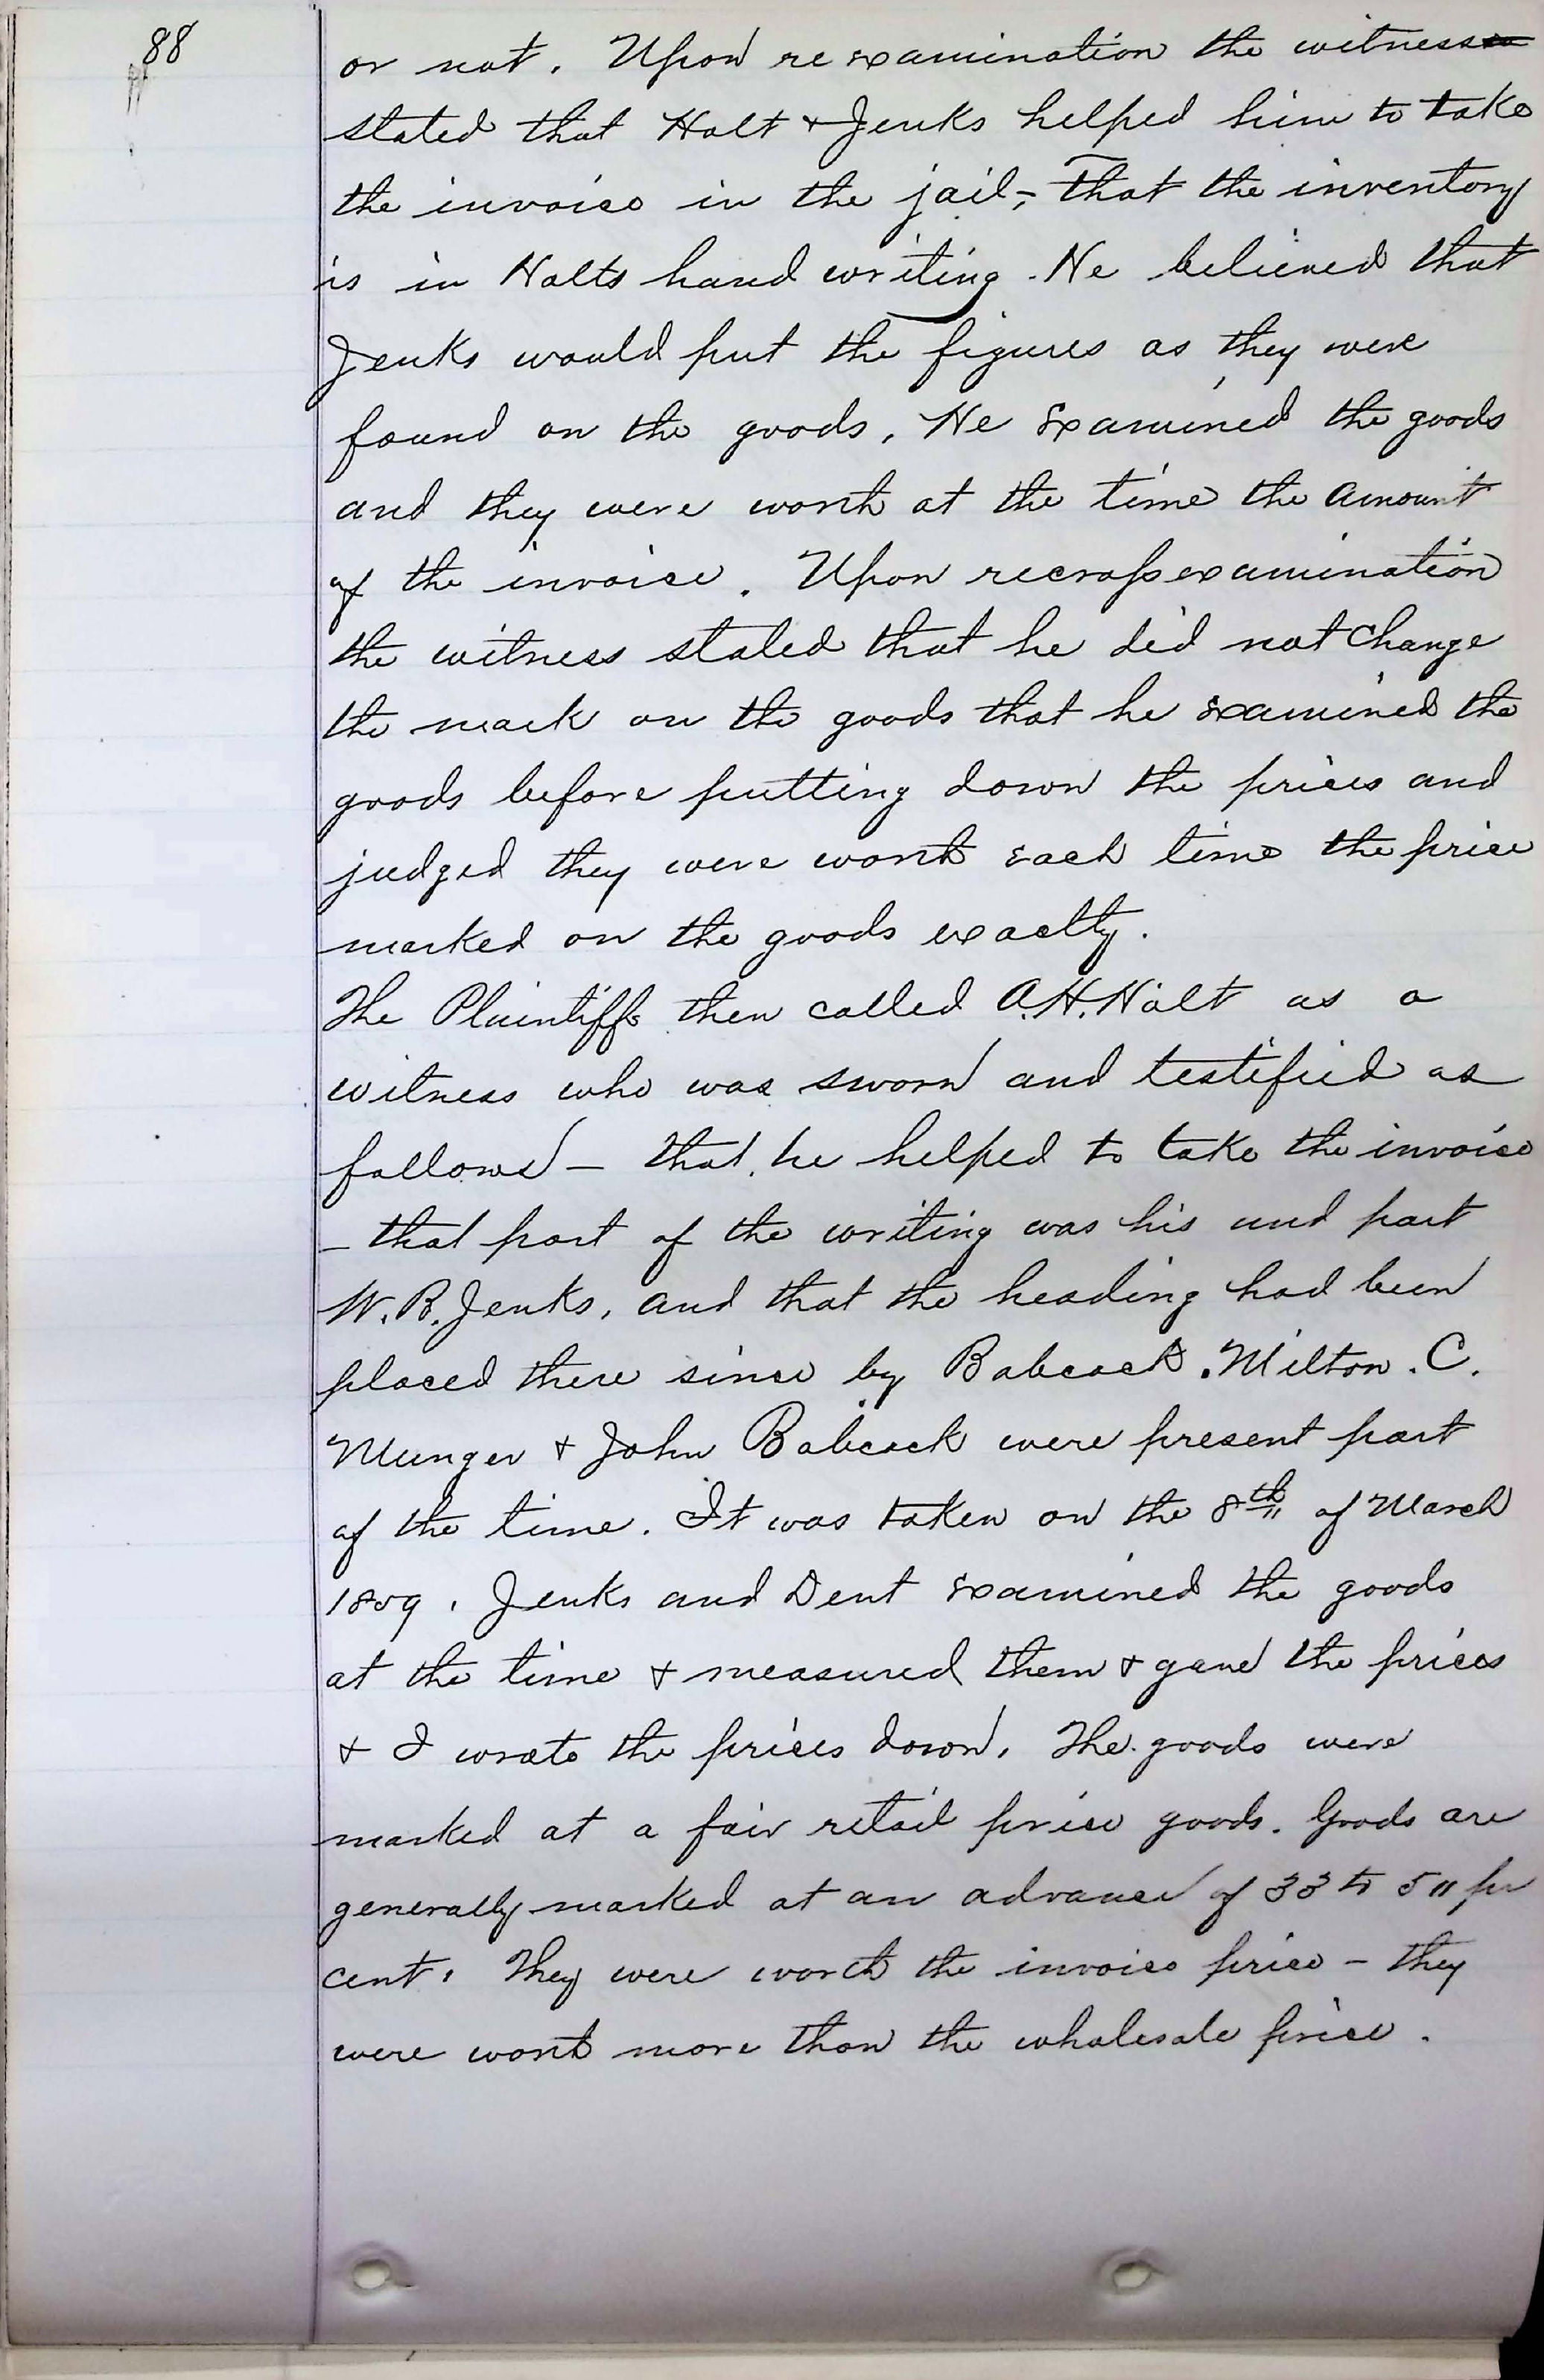 88
or not. Upon re examination the witness
stated that Halt & Jenks helped him to take
the invoice in the jail, - That the inventory
is in Halts hand writing. He believed that
Jenks would put the figures as they were
found on the goods. He Examined the goods
and they were worth at the time the Amount
of the invoice. Upon recross examination
the witness stated that he did not Change
the mark on the goods that he Examined the
goods before putting down the prices and
judged they were worth each time the price
marked on the goods exactly.
The Plaintiffs then called A.H. Halt as a
witness who was sworn and testified as
follows - that he helped to take the invoice
- that part of the writing was his and part
W. R. Jenks, and that the heading had been
placed there since by Babcock. Milton. C.
Munger & John Babcock were present part
of the time. It was taken on the 8th of March
1859. Jenks and Dent Examined the goods
at the time & measured them & gave the prices
& I wrote the prices down. The goods were
marked at a fair retail price goods. Goods are
generally marked at an advance of 33 to 5" per
cent. They were worth the invoice price - they
were worth more than the wholesale price.